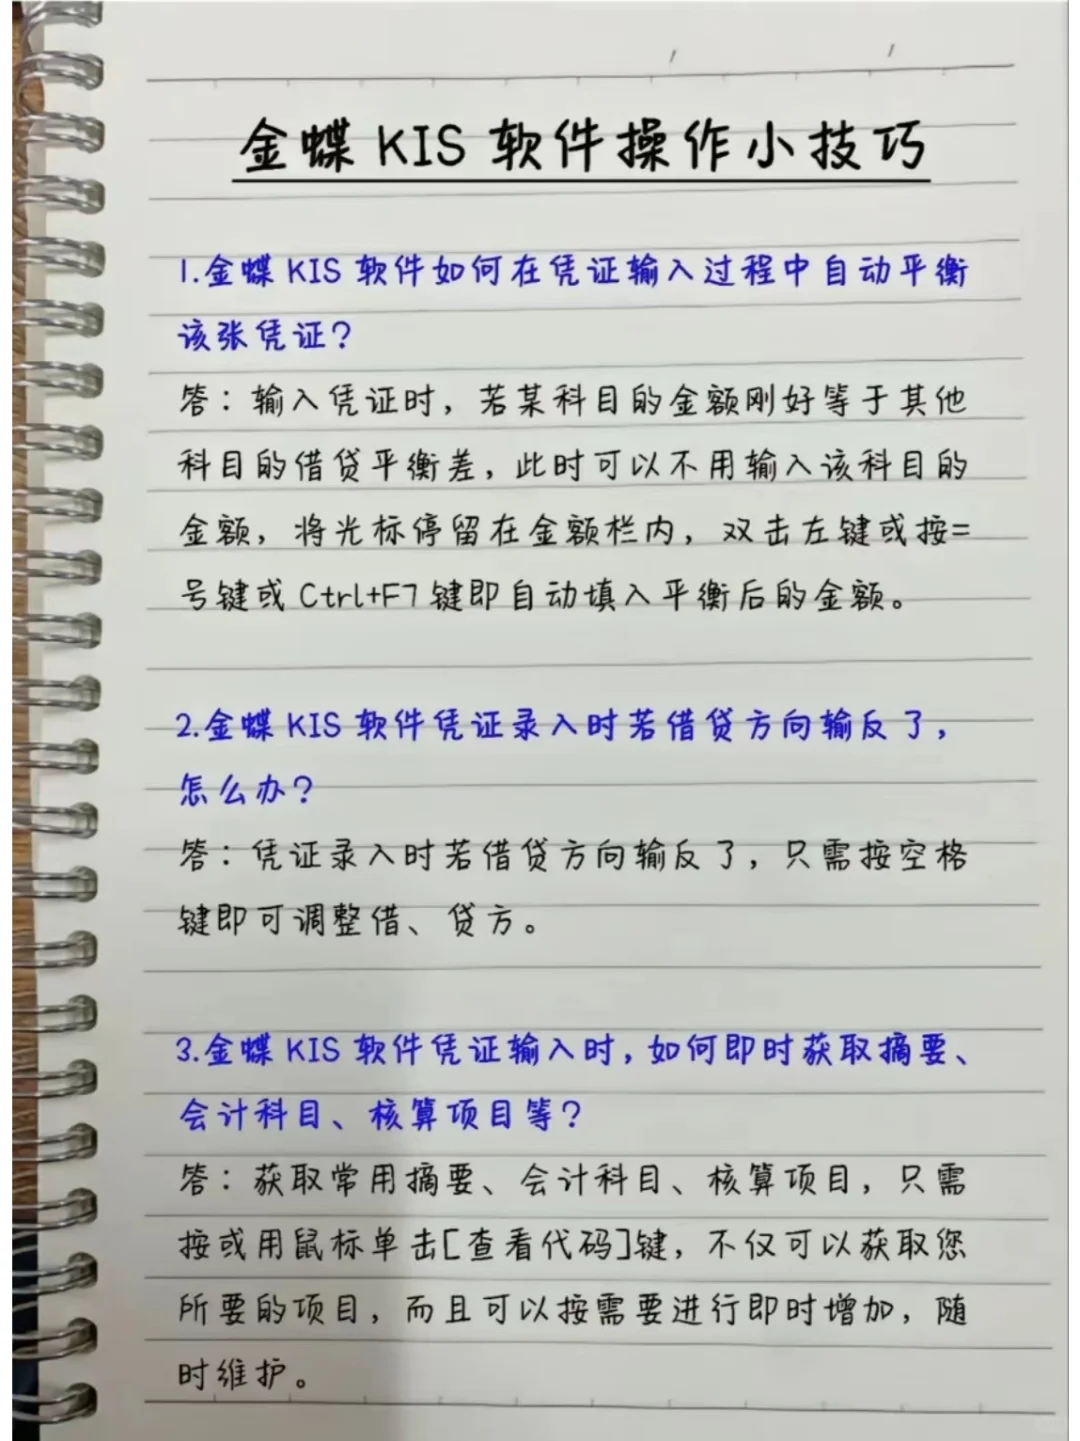 金蝶 KIS 软件操作小技巧
1.金蝶 KIS 软件如何在凭证输入过程中自动平衡
该张凭证？
答：输入凭证时，若某科目的金额刚好等于其他
科目的借贷平衡差，此时可以不用输入该科目的
金额，将光标停留在金额栏内，双击左键或按=
号键或 Ctrl+F7 键即自动填入平衡后的金额。
2.金蝶 KIS 软件凭证录入时若借贷方向输反了，
怎么办？
答：凭证录入时若借贷方向输反了，只需按空格
键即可调整借、贷方。
3.金蝶 KIS 软件凭证输入时，如何即时获取摘要、
会计科目、核算项目等？
答：获取常用摘要、会计科目、核算项目，只需
按或用鼠标单击[查看代码]键，不仅可以获取您
所要的项目，而且可以按需要进行即时增加，随
时维护。